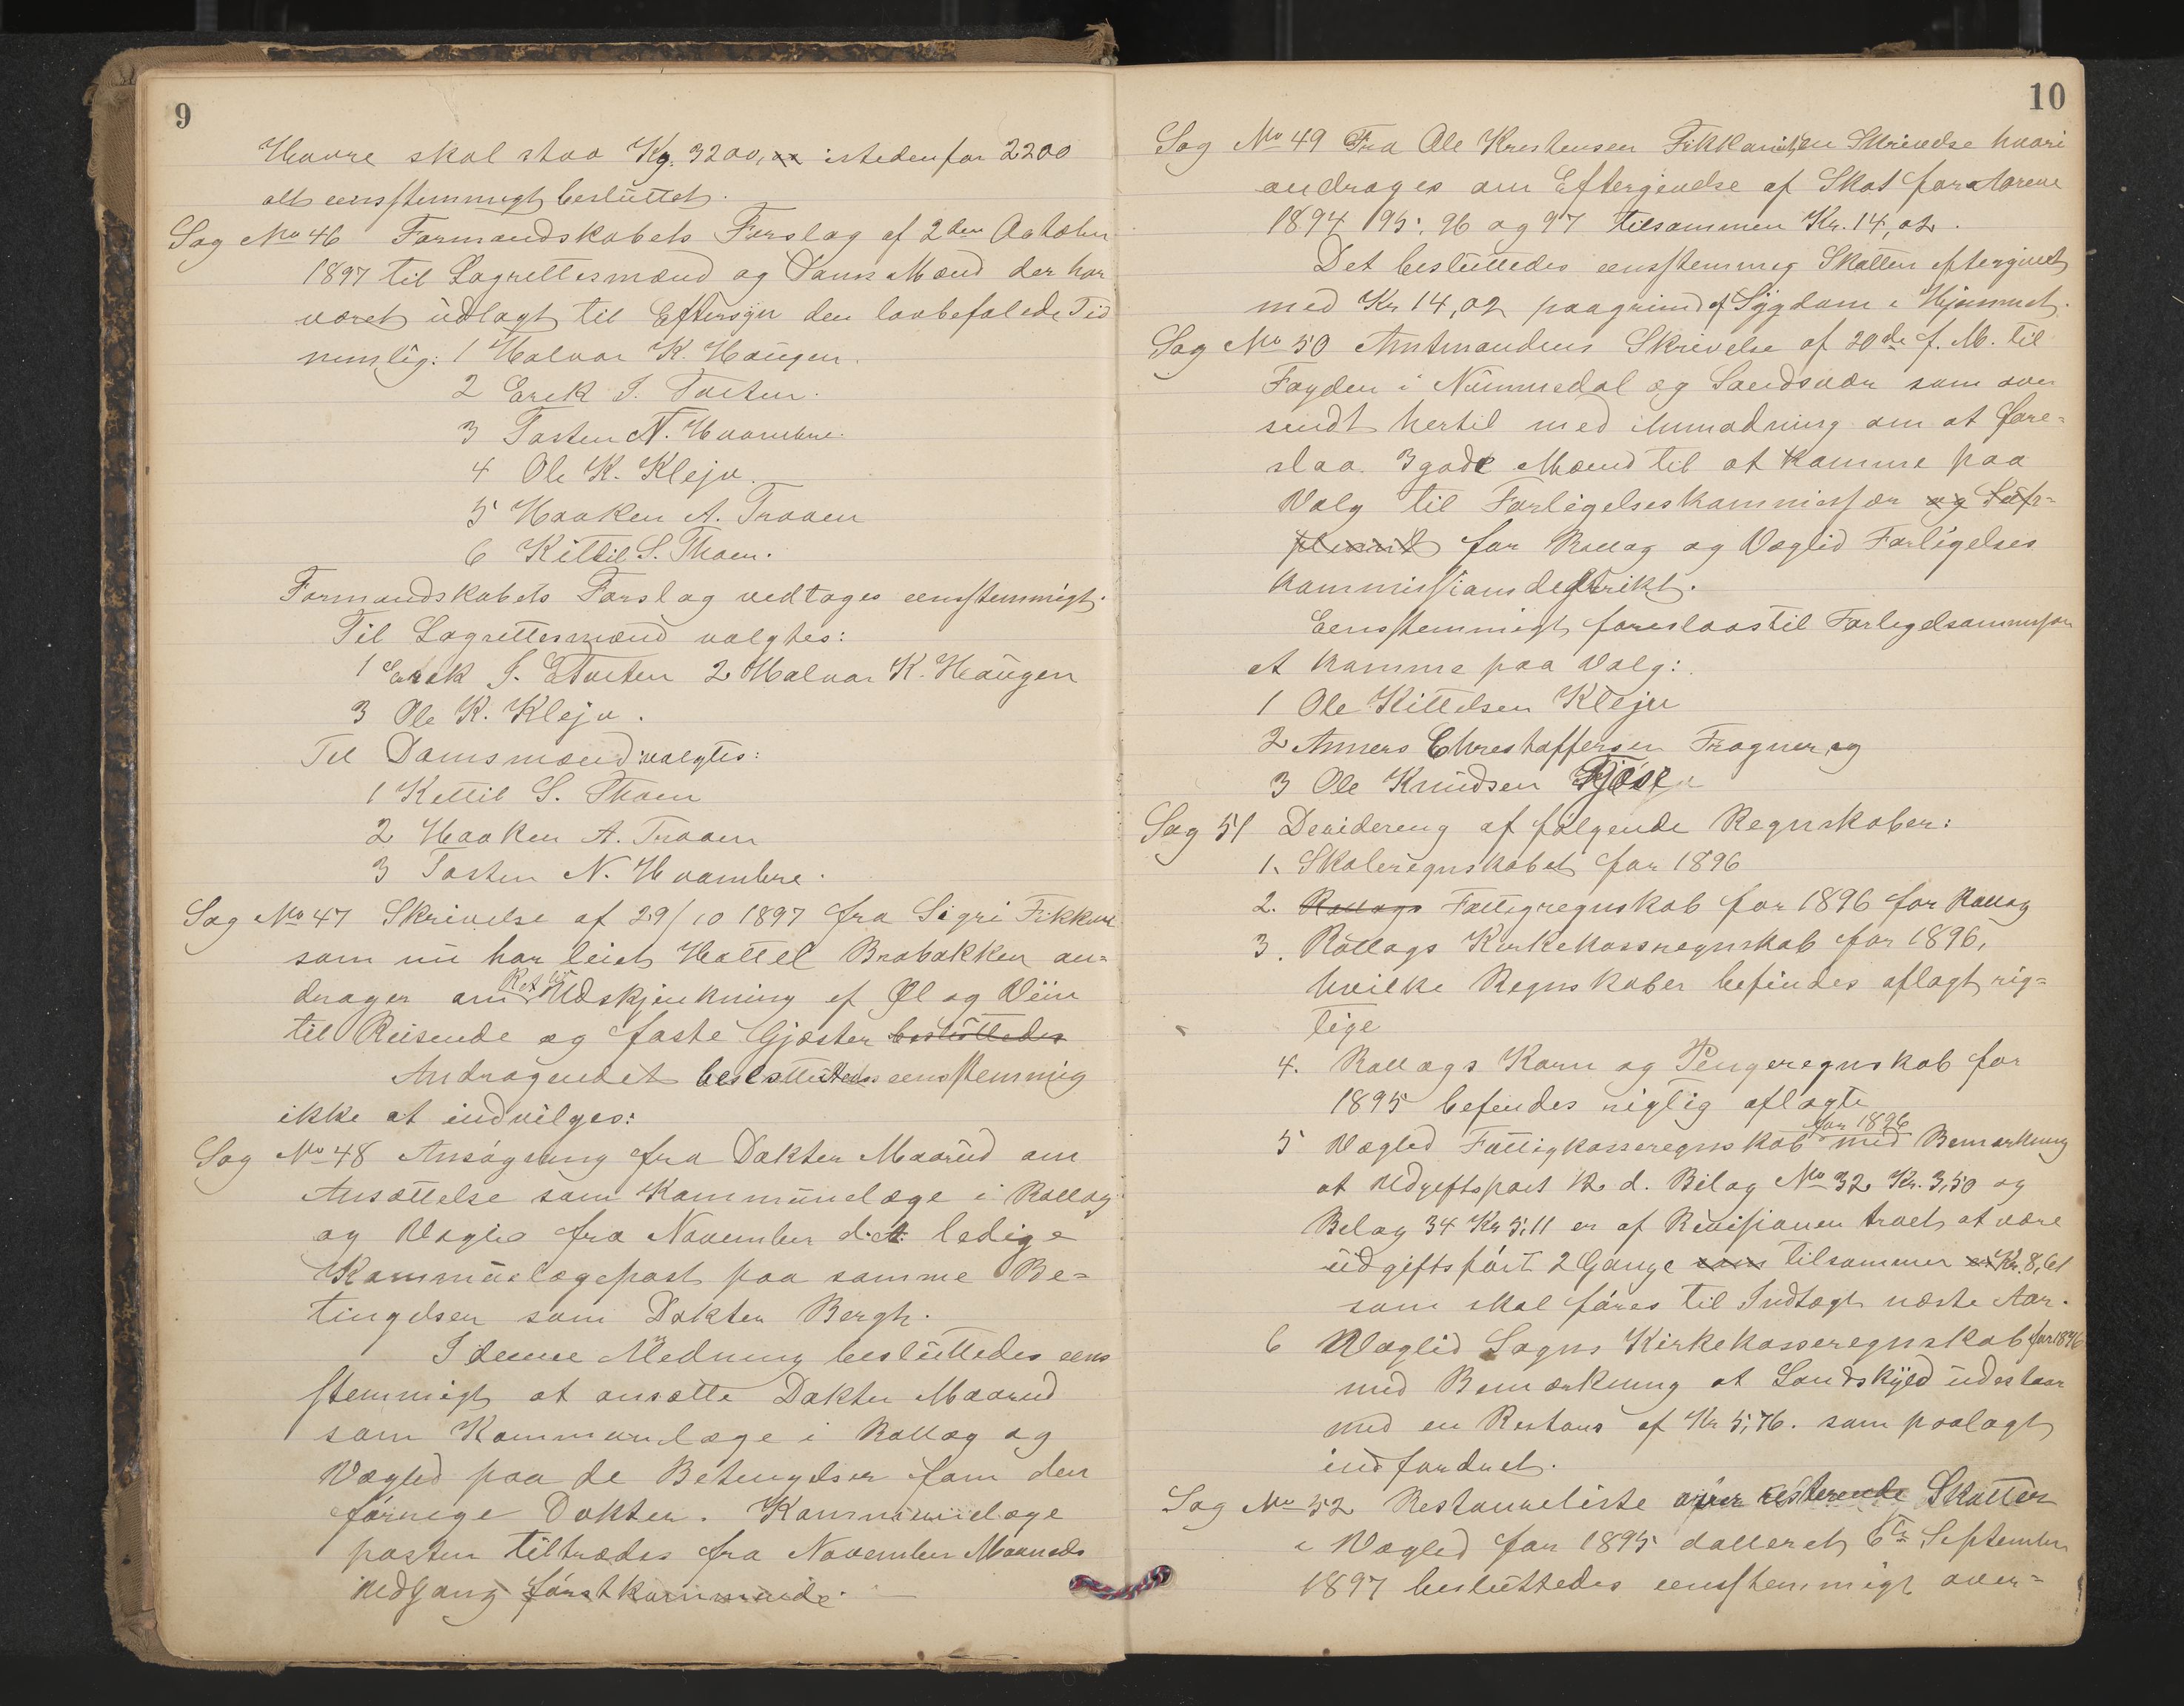 9
Hvore skal staa Kg. 3200, istedenfor 2200
alt eensstemmigt besluttet.
Sag No 46 Formandskabets Forslag af 2den October
1897 til Lagrettesmænd og Doms Mænd der har
været udlagt til Eftersyn den lovbefalede Tid
nemlig: 1 Halvor K. Haugen.
2 Erek J. Torten.
3 Tosten N. Hvambre.
4 Ole K. Kleju.
5 Haaken A. Traaen
6 Kittil S. Thoen.
Formandskabets Forslag vedtages eensstemmigt.
Til Lagrettesmænd valgtes:
1 Erek J. Torten 2 Halvor K. Haugen
3 Ole K. Kleju.
Til Domsmænd valgtes:
1 Kettil S. Thoen
2 Haaken A. Traaen
3 Tosten N. Hvambre.
Sag No 47 Skrivelse af 29/10 1897 fra Sigri Fikkan
som nu har leiet Hottel Brobakken an=
drager om Ret til Udskjenkning af Øl og Viin
til Reisende og faste Gjæster besluttedes
Andragendet besluttedes eensstemmig
ikke at indvilges:
Sag No 48 Ansøgning fra Dokter Maarud om
Ansættelse som Kommunelæge i Rollag
og Veglid fra November d. A. ledige
Kommunelægepost paa samme Be=
tingelser som Dokter Bergh.
I denne Aledning besluttedes eens
stemmigt at ansætte Dokter Maarud
som Kommunelæge i Rollag og
Vegled paa de Betingelser som den
førrige Dokter. Kommunelæge
posten tiltrædes fra November Maaneds
Udgang førstkommende.
10
Sag No 49 Fra Ole Krestensen Fikkan en Skrivelse hvori
andrages om Eftergivelse af Skat for Aarene
1894 95, 96 og 97 tilsammen Kr. 14,02.
Det besluttedes eensstemmig Skatten eftergivet
med Kr 14,02 paagrund af Sygdom i Hjemmet.
Sag No 50 Amtmandens Skrivelse af 20de f. M. til
Fogden i Nummedal og Sandsvær som over
sendt hertil med Anmodning om at fore=
slaa 3 gode Mænd til at komme paa
Valg til Forligelseskommissær og Sup=
pleant for Rollag og Veglid Forligelses
kommissions destrikt.
Eensstemmigt foreslaas til Forligelsommissær
at komme paa Valg:
1 Ole Kittelsen Kleju
2 Anners Chrestoffersen Fragner og
3 Ole Knudsen
Sag 51 Desidereng af følgende Regnskaber:
1. Skoleregnskabet for 1896
2. Rollags Fattigregnskab for 1896 for Rollag
3. Rollags Kirkekasseregnskab for 1896,
hvilke Regnskaber befindes aflagt rig=
tige
4. Rollags Korn og Pengeregnskab for
1895 befendes rigtig aflagte
5 Vegled Fattigkasseregnskab for 1896 med Bemærkning
at Udgiftspost 12 d. Bilag No 32 Kr. 3,50 og
Belag 34 Kr 5,11 er af Revisionen troet at være
udgiftsført 2 Gange tilsammen Kr. 8,61
som skal føres til Indtægt næste Aar.
6 Veglid Sogns Kirkekasseregnskab for 1896
med Bemærkning at Landskyld udestaar
med en Restans af Kr 5,76. som paalagt
indfordret.
Sag No 52 Restanseliste over resterende Skatter
i Vegled for 1895 datteret 6te September
1897 besluttedes eensstemmigt over=